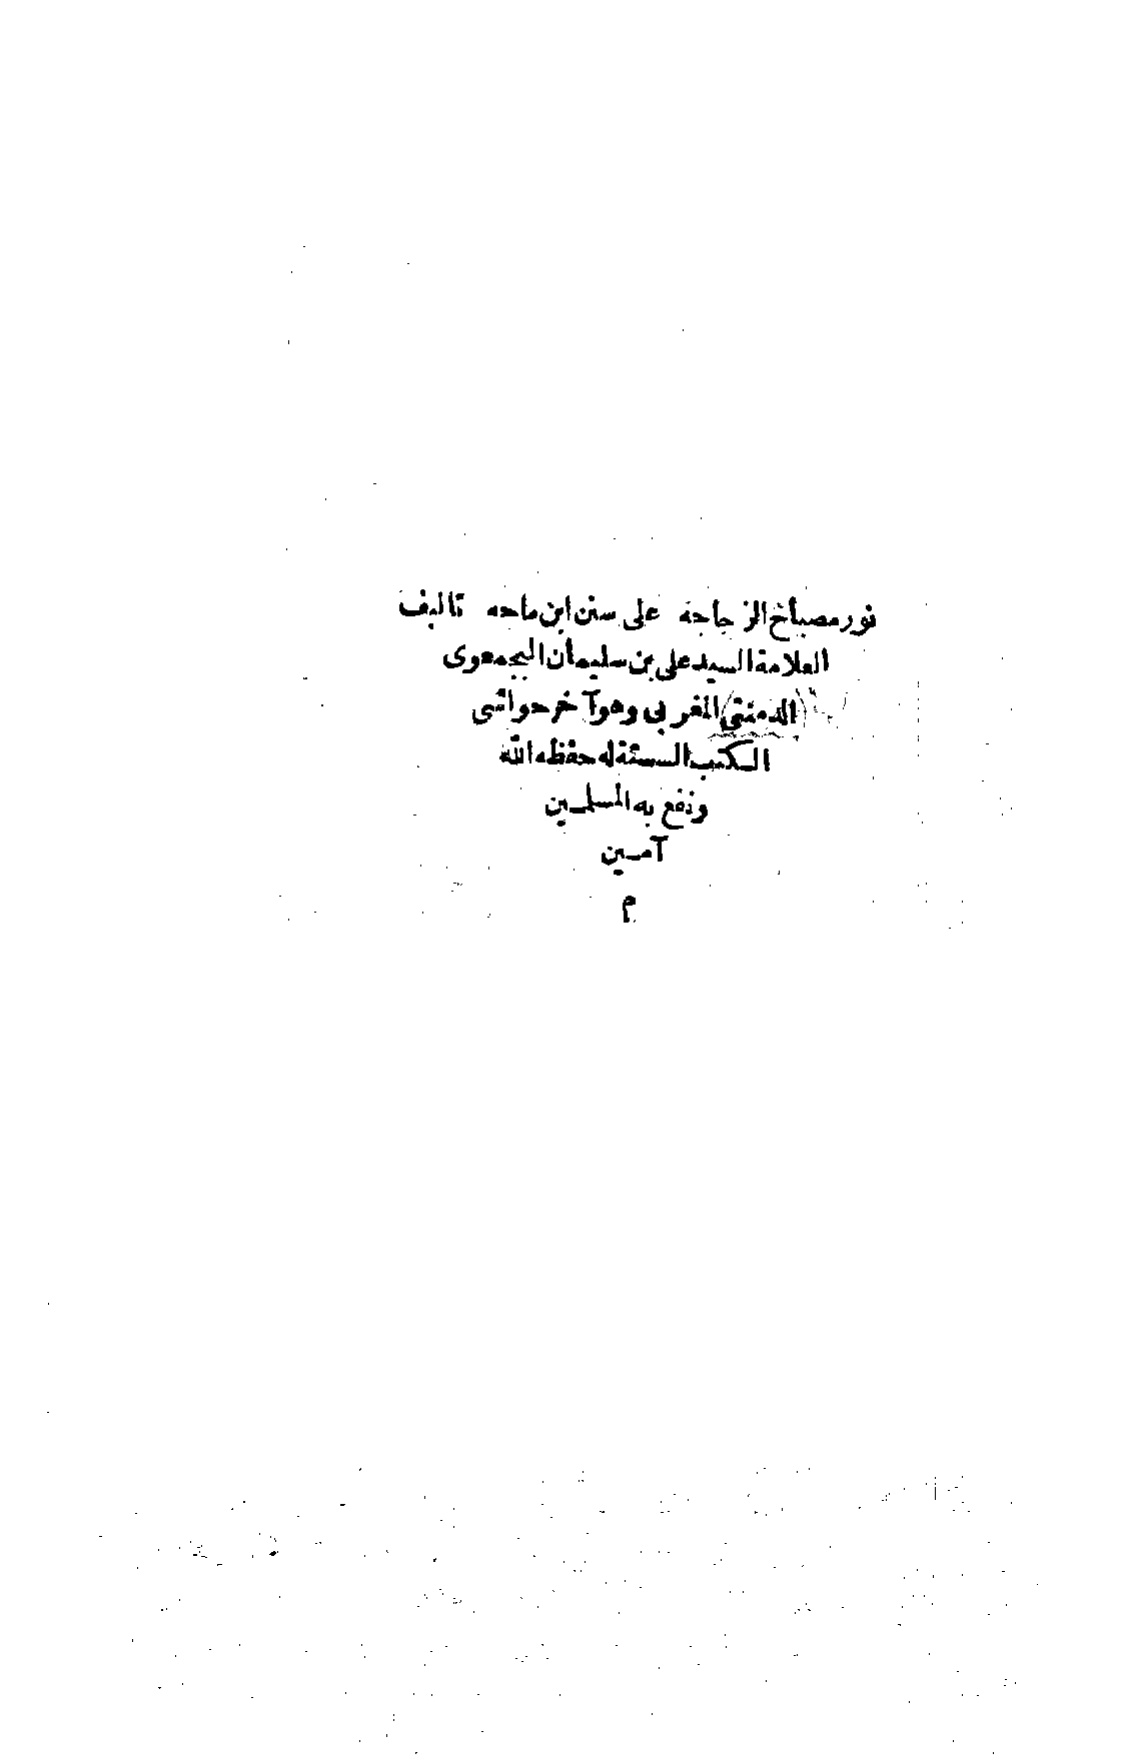 نور مصباح الزجاجة على سنن ابن ماجه تاليف
العلامة السيد على بن سليمان البجمعوى
(الدمنتى) المغربى وهو آخر حواشى
الكتب الستة له حفظه الله
ونفع به المسلمين
آمين
م